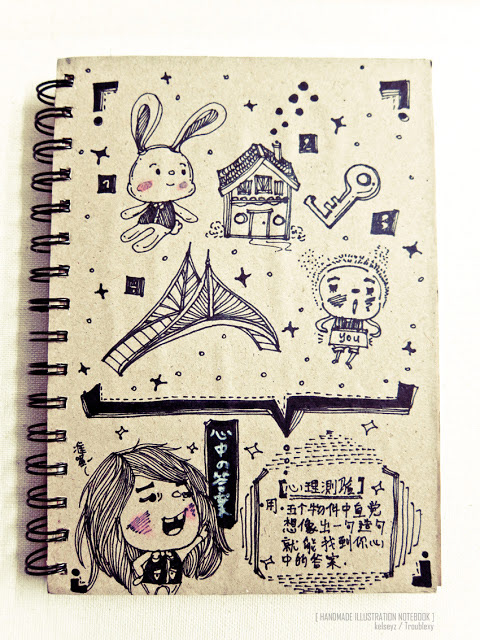 1
2
3
you
心中の答案
【心理測驗】
用五个物件中直覺
想像出一句造句
就能找到你心
中的答案.
[ HANDMADE ILLUSTRATION NOTEBOOK ]
kelseyz / Troublevy